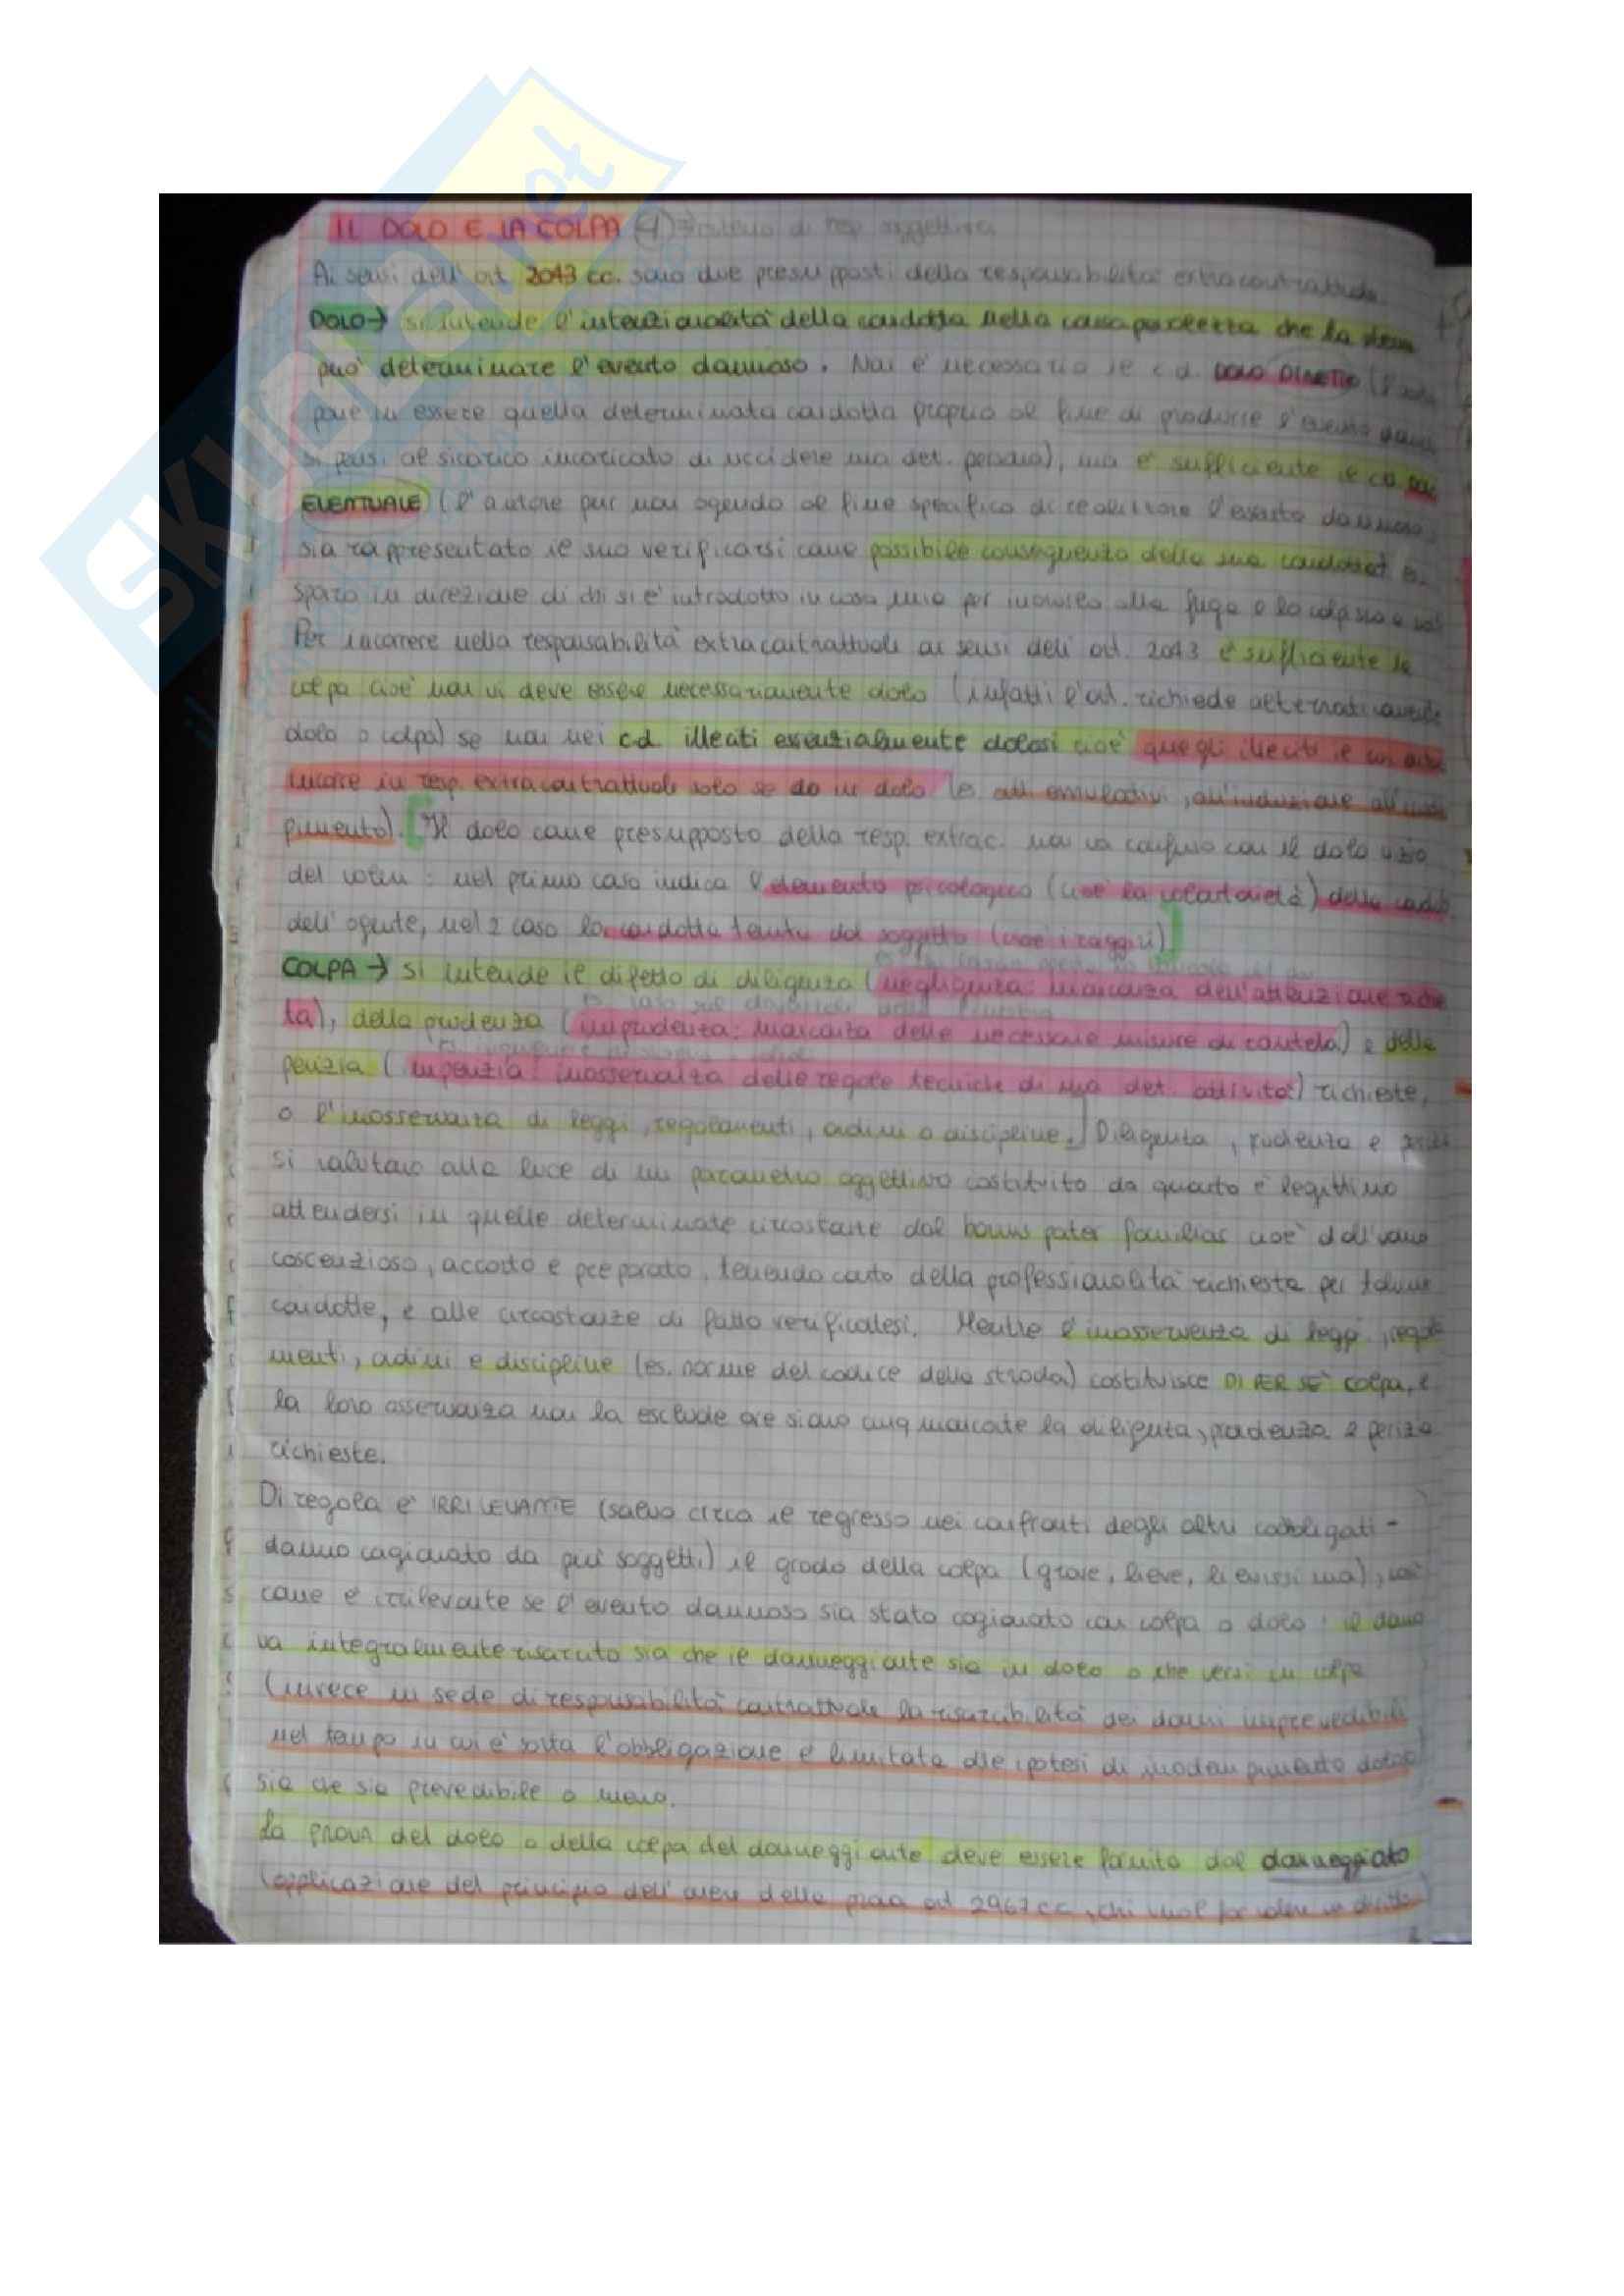 SKUOLA.net
IL DOLO E LA COLPA (4) di resp oggettiva
Ai sensi dell'art 2043 cc. sono due presupposti della responsabilità extracontrattuale.
DOLO → si intende l'intenzionalità della condotta nella consapevolezza che la stessa
può determinare l'evento dannoso. Non è necessario il c.d. DOLO DIRETTO (
pone in essere quella determinata condotta proprio al fine di produrre l'evento
si pensi al sicario incaricato di uccidere una det. persona), ma è sufficiente il cd
EVENTUALE) (l'autore pur non agendo al fine specifico di realizzare l'evento dannoso,
sia rappresentato il suo verificarsi come possibile conseguenza della sua condotta
sparo in direzione di chi si è introdotto in casa mia per indurlo alla fuga e lo colpisco
Per incorrere nella responsabilità extracontrattuale ai sensi dell'art. 2043 è sufficiente la
colpa cioè non vi deve essere necessariamente dolo (infatti l'art. richiede alternativamente
dolo o colpa) se non nei c.d. illeciti essenzialmente dolosi cioè quegli illeciti
in resp. extracontrattuale solo se in dolo (es. atti emulativi, all'induzione
pimento). Il dolo come presupposto della resp. extrac. non va confuso con il dolo vizio
del volere: nel primo caso indica l'elemento psicologico (cioè la volontarietà) della
dell'agente, nel 2 caso la condotta tenuta dal soggetto (cioè i raggiri)
COLPA → si intende il difetto di diligenza (negligenza: mancanza dell'attenzione richie
ta), della prudenza (imprudenza: mancanza delle necessarie misure di cautela) e della
perizia (imperizia: inosservanza delle regole tecniche di una det. attività) richieste,
o l'inosservanza di leggi, regolamenti, ordini o discipline. Diligenza, prudenza e
si valutano alla luce di un parametro oggettivo costituito da quanto è legittimo
attendersi in quelle determinate circostanze dal bonus pater familias cioè dall'uomo
coscenzioso, accorto e preparato, tenendo conto della professionalità richiesta per talune
condotte, e alle circostanze di fatto verificatesi. Mentre l'inosservanza di leggi, regola
menti, ordini e discipline (es. norme del codice della strada) costituisce DI PER SÈ colpa, e
la loro osservanza non la esclude ove siano cmq mancate la diligenza, prudenza e perizia
richieste.
Di regola è IRRILEVANTE (salvo circa il regresso nei confronti degli altri coobbligati -
danno cagionato da più soggetti) il grado della colpa (grave, lieve, lievissima), così
come è irrilevante se l'evento dannoso sia stato cagionato con colpa o dolo: il danno
va integralmente risarcito sia che il danneggiante sia in dolo o che versi in colpa
(invece in sede di responsabilità contrattuale la risarcibilità dei danni imprevedibili
nel tempo in cui è sorta l'obbligazione è limitata alle ipotesi di inadempimento doloso)
sia che sia prevedibile o meno.
La prova del dolo o della colpa del danneggiante deve essere fornita dal danneggiato
(applicazione del principio dell'onere della prova art 2967 cc, chi vuol far valere un diritto)